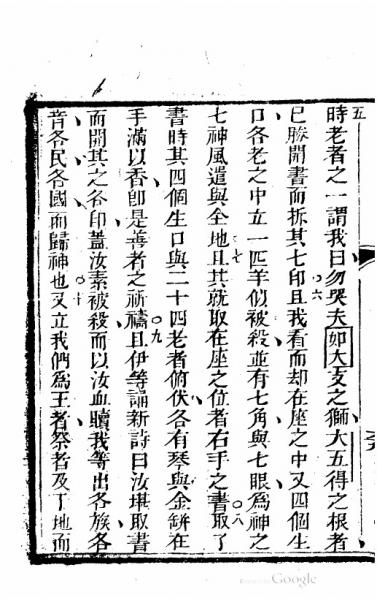 五
時老者之一謂我曰勿哭夫如大之獅大五得之根者
已勝開書而拆其七印且我看而却在座之中又四個生
口各老之中立一匹羊似被殺並有七角與七眼為神之
七神風遣與全地且其就取在座之位者右手之書取了
書時其四個生口與二十四老者俯伏各有琴與金缾在
手滿以香即是善者之祈禱且伊等誦新詩曰汝堪取書
而開其之各印蓋汝素被殺而以汝血贖我等出各族各
音各民各國而歸神也又立我們為王者祭者及了地而
六
七
八
九
十
Google